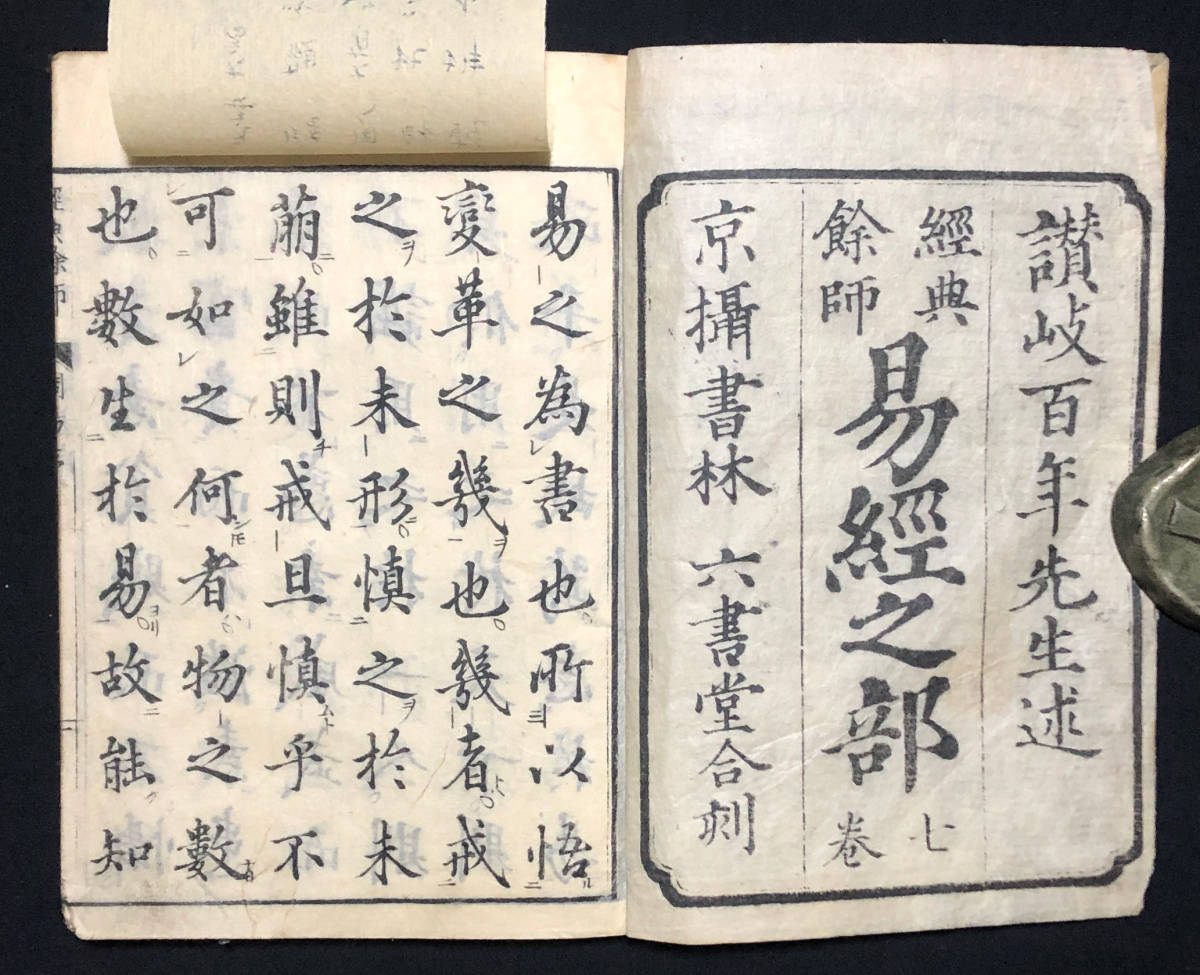 讃岐百年先生述
經典
餘師
易經之部
七
卷
京攝書林 六書堂合刻
易之為書也所以悟
變革之幾也幾者戒
之於未形慎之於未
萠雖則戒且慎乎不
可如之何者物之數
也數生於易故能知